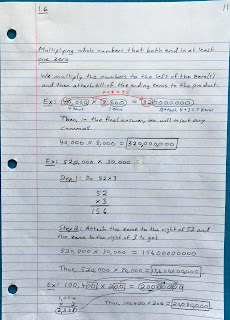 1.6
11
Multiplying whole numbers that both end in at least
one zero
We multiply the numbers to the left of the zero(s)
and then attach all of the ending zeros to the product.
Ex: 40,000 × 8,000 = 320000000
4 zeros 3 zeros Attach 4+3=7 zeros
Then, in the final answer, we will insert any
commas
40,000 × 8,000 = 320,000,000
Ex: 520,000 × 30,000
Step 1: Do 52×3
52
×3
156
Step 2: Attach the zeros to the right of 52 and
the zeros to the right of 3 to get
520,000 × 30,000 = 15600000000
Thus, 520,000 × 30,000 = 15,600,000,000
Ex: 100,400 × 200 =
1,004
Thus, 100,400 × 200 = 20,080,000